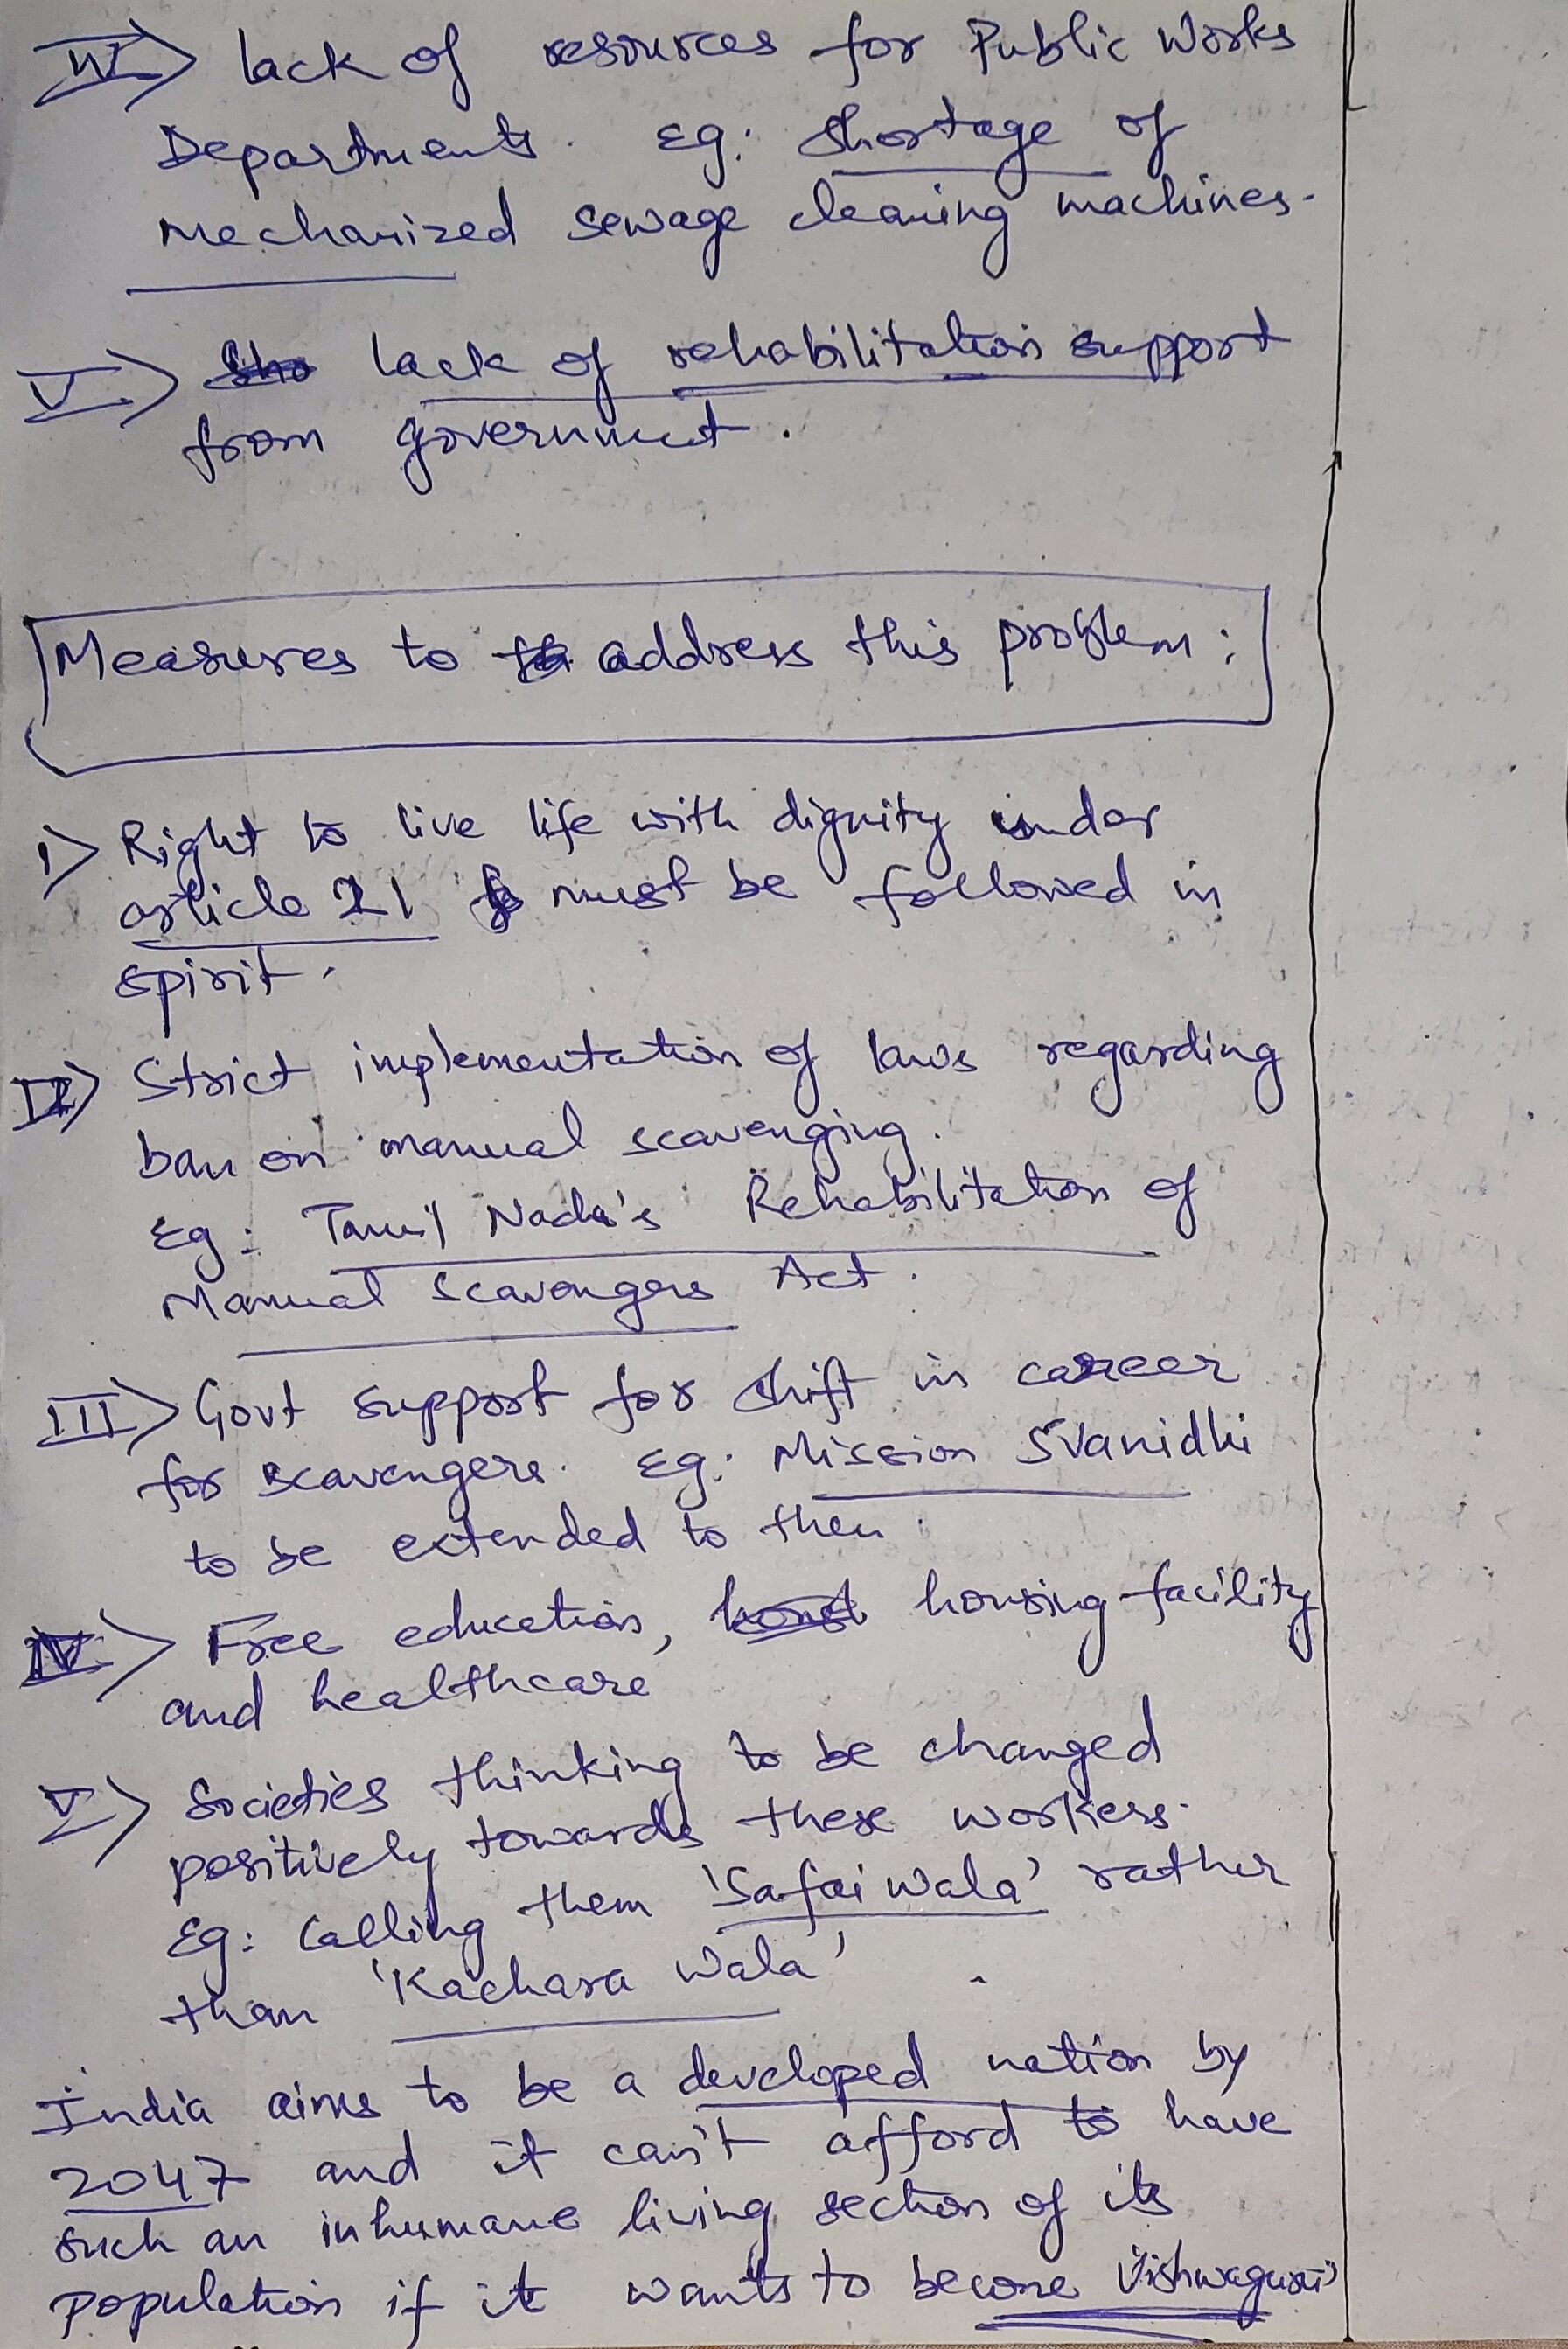 IV> lack of resources for Public Works
Departments. Eg: Shortage of
mechanized sewage cleaning machines.
V.> lack of rehabilitation support
from government.
Measures to address this problem:
I> Right to live life with dignity under
article 21 must be followed in
spirit.
II> Strict implementation of laws regarding
ban on manual scavenging.
Eg: Tamil Nadu's Rehabilitation of
Manual Scavengers Act.
III> Govt support for shift in career
for scavengers. Eg: Mission SVanidhi
to be extended to them.
IV> Free education, housing facility
and healthcare
V> Societies thinking to be changed
positively towards these workers.
Eg: Calling them 'Safai Wala' rather
than 'Kachara Wala'
India aims to be a developed nation by
2047 and it can't afford to have
such an inhumane living section of its
population if it wants to become Vishwaguru'